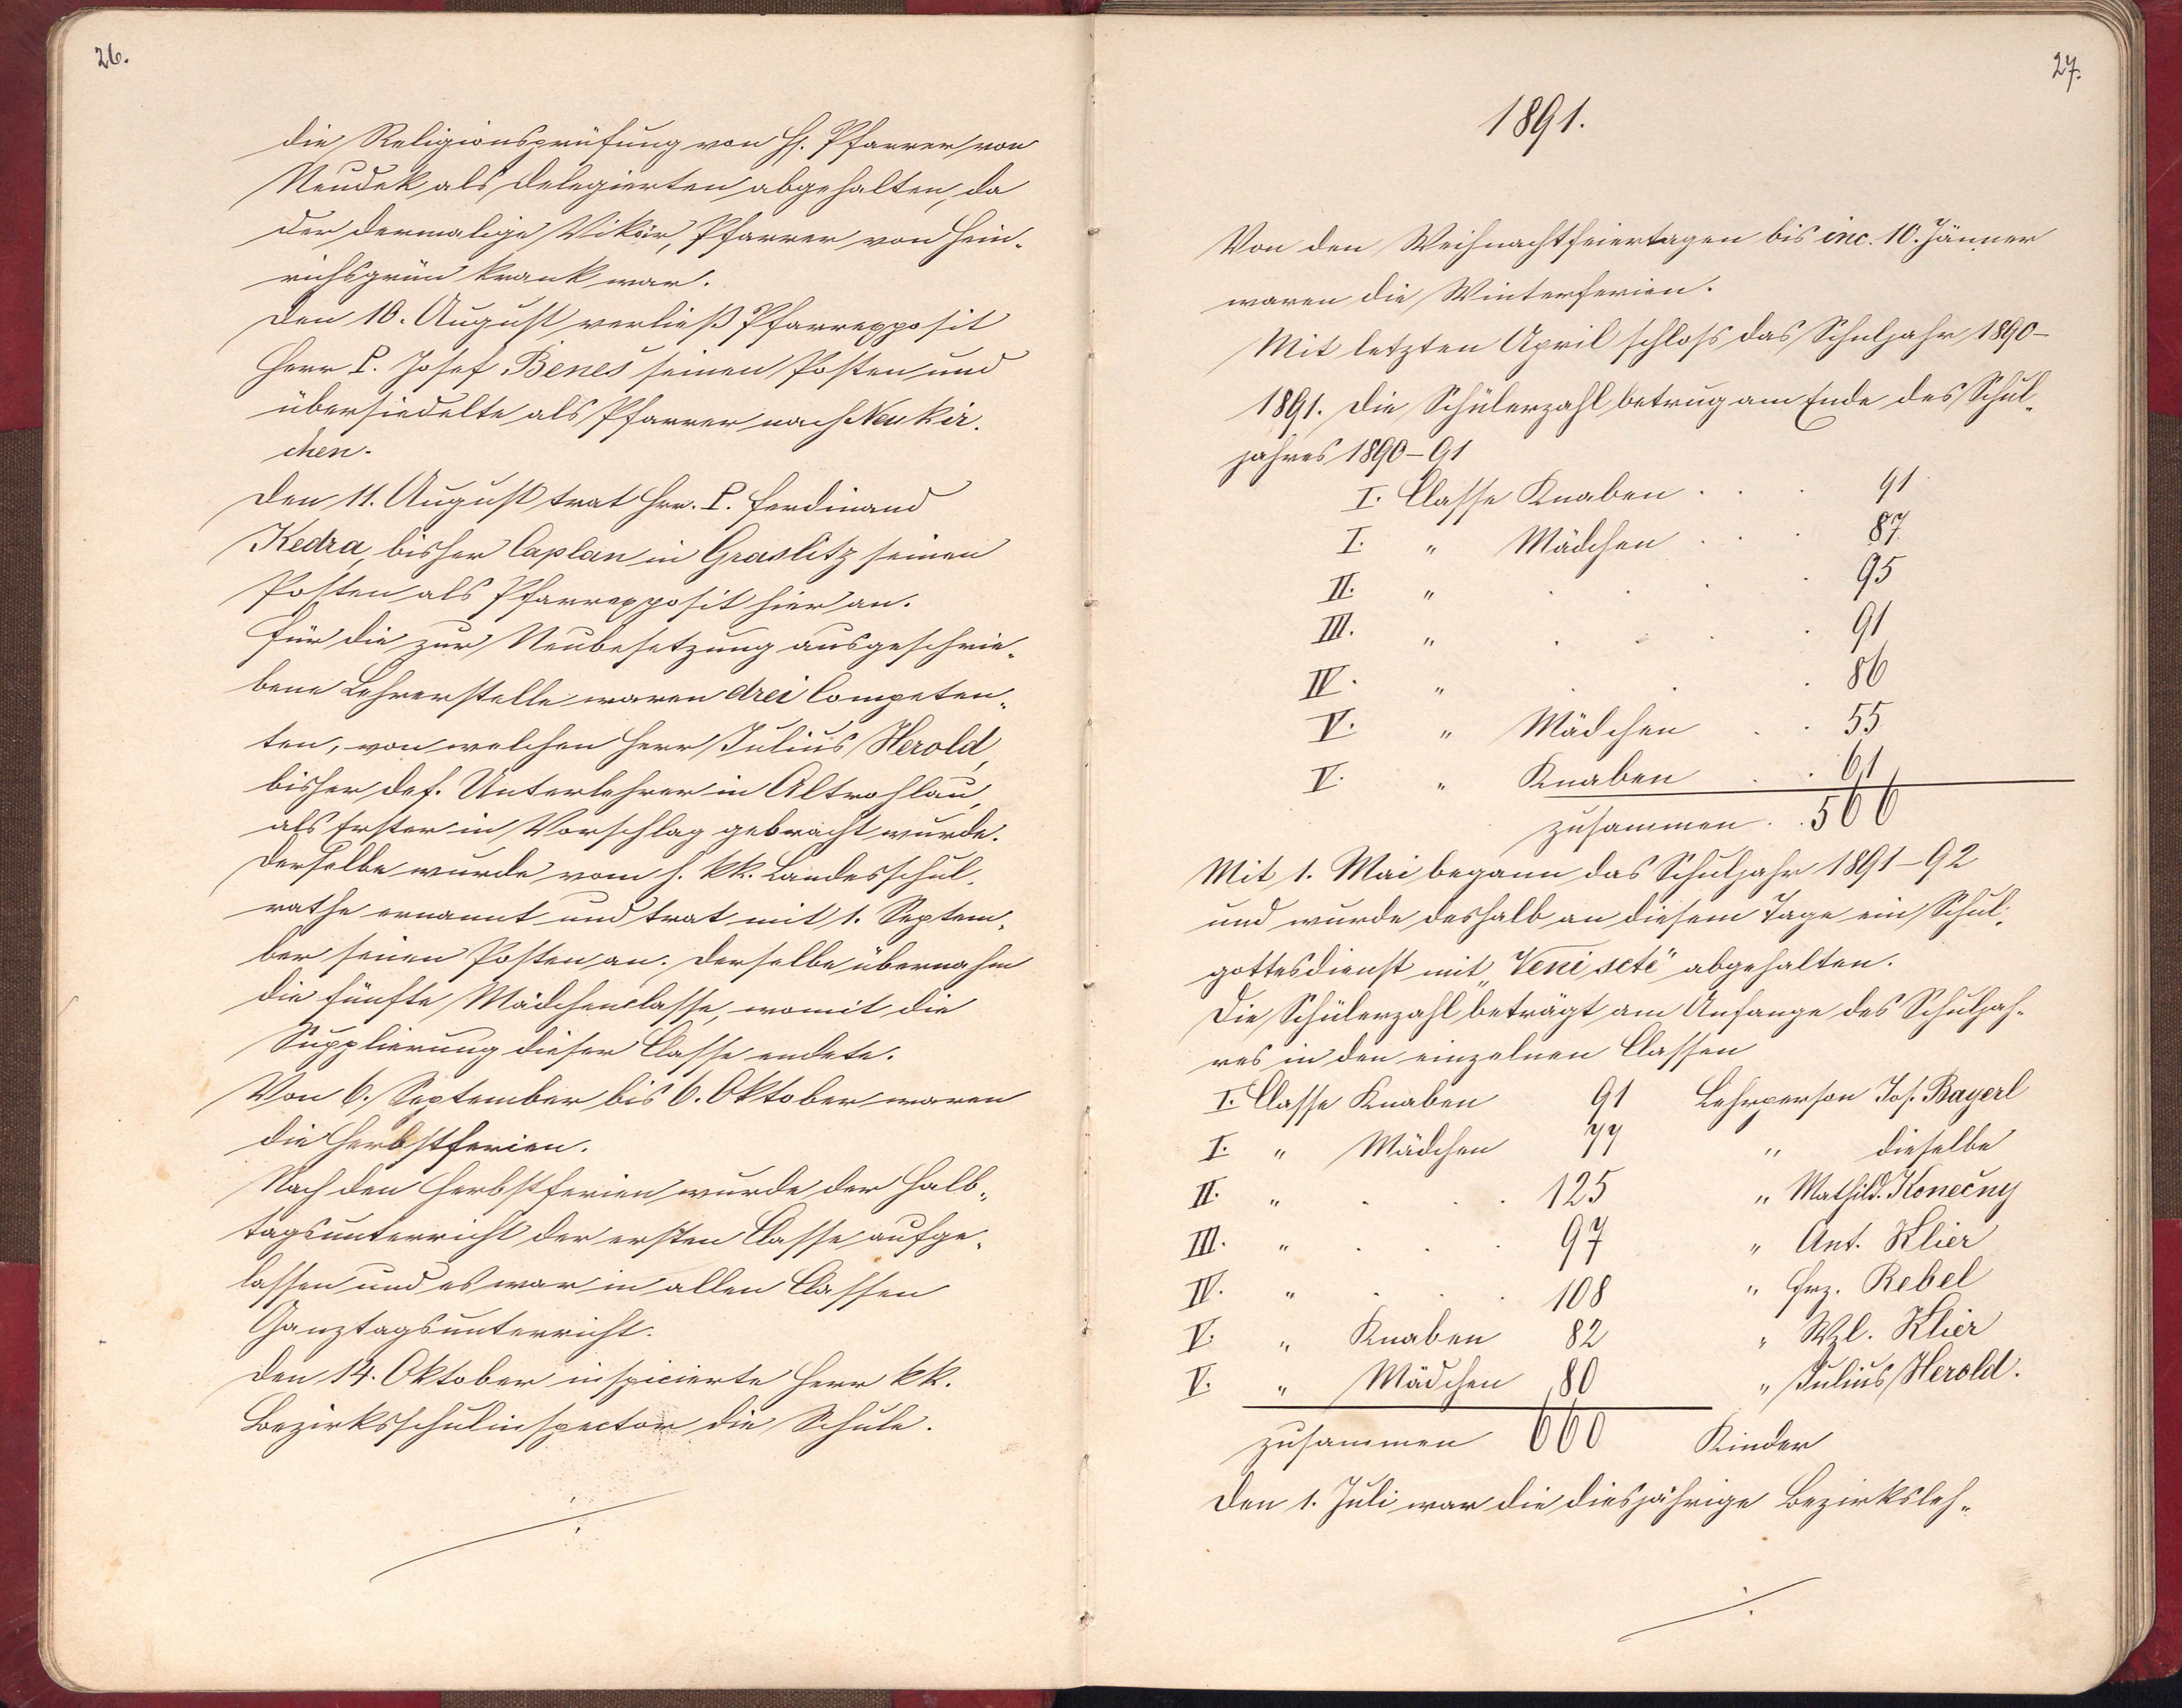 26.
die Religionsprüfung von H. Pfarrer von
Neudek als Delegierten abgehalten, da
der dermalige Vikär, Pfarrer von Hein-
richsgrün krank war.
Den 10. August verließ Pfarrexposit
Herr P. Josef Beneš seinen Posten und
übersiedelte als Pfarrer nach Neukir-
chen.
Den 11. August trat Hrr. P. Ferdinand
Kedra, bisher Caplan in Graslitz seinen
Posten als Pfarrexposit hier an.
Für die zur Neubesetzung ausgeschrie-
bene Lehrerstelle waren drei Competen-
ten, von welchen Herr Julius Herold,
bisher def. Unterlehrer in Altrohlau,
als Erster in Vorschlag gebracht wurde.
Derselbe wurde vom h. kk. Landesschul-
rathe ernannt und trat mit 1. Septem-
ber seinen Posten an. Derselbe übernahm
die fünfte Mädchenclasse, womit die
Supplierung dieser Classe endete.
Von 6. September bis 6. Oktober waren
die Herbstferien.
Nach den Herbstferien wurde der Halb-
tagsunterricht der ersten Classe aufge-
lassen und es war in allen Classen
Ganztagsunterricht.
Den 14. Oktober inspicierte Herr kk.
Bezirksschulinspector die Schule.
27.
1891.
Von den Weihnachtfeiertagen bis inc. 10. Jänner
waren die Winterferien.
Mit letzten April schloss das Schuljahr 1890-
1891. Die Schülerzahl betrug am Ende des Schul-
jahres 1890-91
I. Classe Knaben . . . 91
I. " Mädchen . . . 87
II. " . . . 95
III. " . . . 91
IV. " . . . 86
V. " Mädchen . . 55
V. " Knaben . . 61
zusammen . . 566
Mit 1. Mai begann das Schuljahr 1891-92
und wurde deshalb an diesem Tage ein Schul-
gottesdienst mit „Veni scte" abgehalten.
Die Schülerzahl beträgt am Anfange des Schuljah-
res in den einzelnen Classen
I. Classe Knaben 91 Lehrperson Jos. Bayerl
I. " Mädchen 77 " dieselbe
II. " . . . 125 " Mathild. Konečny
III. " . . . 97 " Ant. Klier
IV. " . . . 108 " Frz. Rebel
V. " Knaben 82 " Wzl. Klier
V. " Mädchen 80 " Julius Herold.
zusammen 660 Kinder
Den 1. Juli war die diesjährige Bezirksleh-